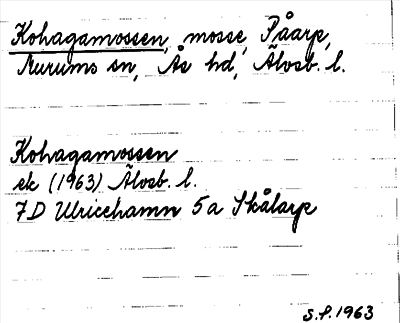 Kohagamossen, mosse, Påarp,
Murums sn, Ås hd, Älvsb. l.
Kohagamossen
ek (1963) Älvsb. l.
7D Ulricehamn 5a Skålarp
S.F. 1963